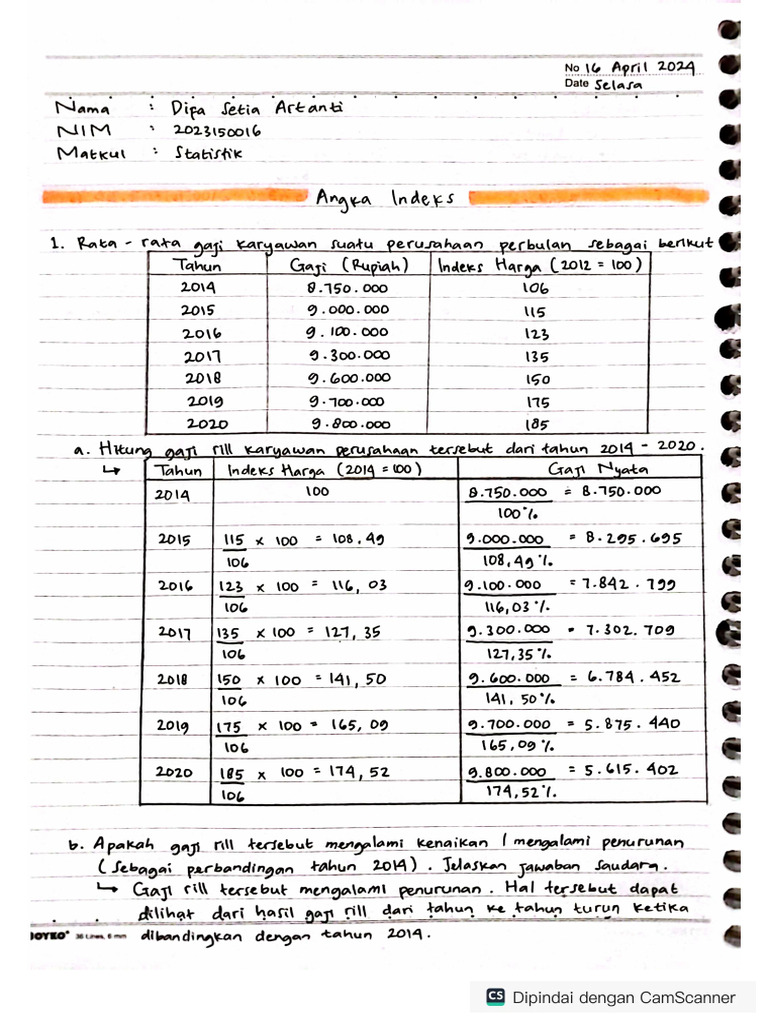 No 16 April 2024
Date Selasa
Nama : Dipa Setia Artanti
NIM : 2023150016
Matkul : Statistik
Angka Indeks
1. Rata - rata gaji karyawan suatu perusahaan perbulan sebagai berikut
Tahun Gaji (Rupiah) Indeks Harga (2012 = 100)
2014 8.750.000 106
2015 9.000.000 115
2016 9.100.000 123
2017 9.300.000 135
2018 9.600.000 150
2019 9.700.000 175
2020 9.800.000 185
a. Hitung gaji rill karyawan perusahaan tersebut dari tahun 2014 - 2020.
↳ Tahun Indeks Harga (2014 = 100) Gaji Nyata
2014 100 8.750.000 = 8.750.000
100%
2015 115 x 100 = 108,49 9.000.000 = 8.295.695
106 108,49%
2016 123 x 100 = 116,03 9.100.000 = 7.842.799
106 116,03%
2017 135 x 100 = 127,35 9.300.000 = 7.302.709
106 127,35%
2018 150 x 100 = 141,50 9.600.000 = 6.784.452
106 141,50%
2019 175 x 100 = 165,09 9.700.000 = 5.875.440
106 165,09%
2020 185 x 100 = 174,52 9.800.000 = 5.615.402
106 174,52%
b. Apakah gaji rill tersebut mengalami kenaikan / mengalami penurunan
(Sebagai perbandingan tahun 2014). Jelaskan jawaban saudara.
↳ Gaji rill tersebut mengalami penurunan. Hal tersebut dapat
dilihat dari hasil gaji rill dari tahun ke tahun turun ketika
JOYKO 36 Lines, 6 mm dibandingkan dengan tahun 2014.
CS Dipindai dengan CamScanner